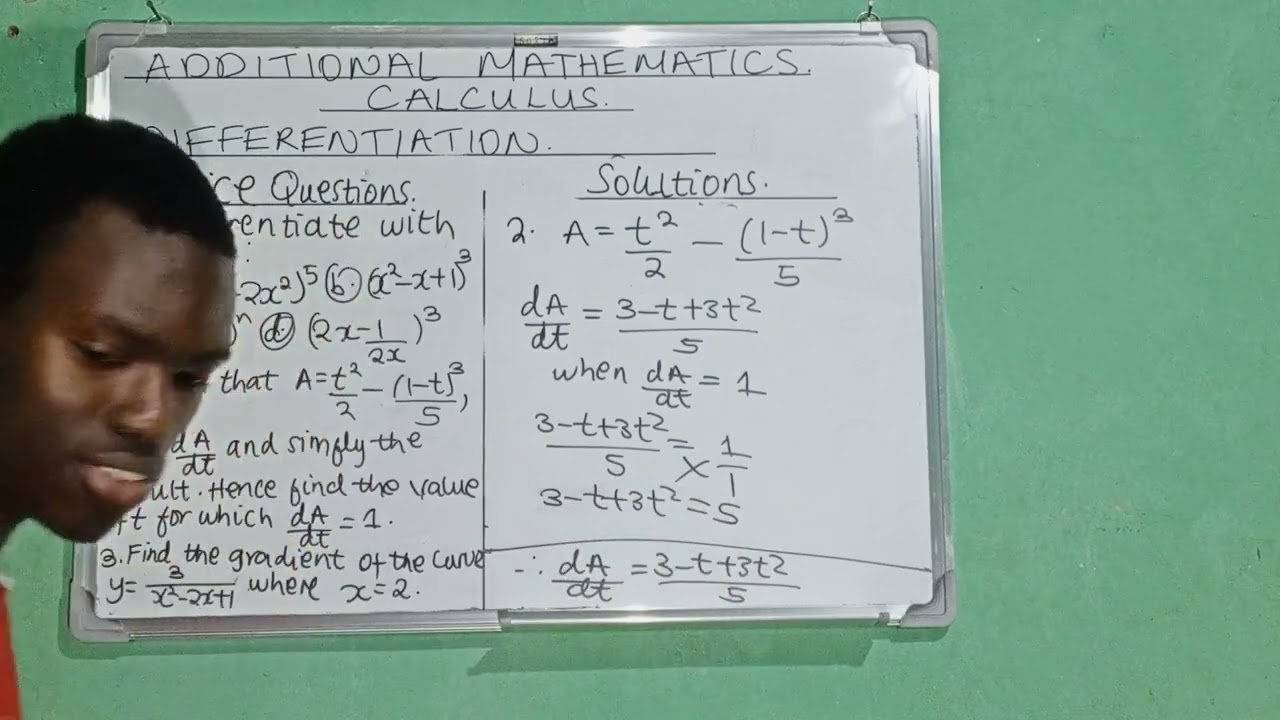 ADDITIONAL MATHEMATICS.
CALCULUS.
DIFFERENTIATION.
Questions.
with
-2x²)⁵ (b). (x²-x+1)³
(d). (2x-1/2x)³
that A=t²/2-(1-t)³/5,
dA/dt and simply the
Hence find the value
t for which dA/dt=1.
3.Find the gradient of the curve
y=3/x²-2x+1 where x=2.
Solutions.
2. A=t²/2-(1-t)³/5
dA/dt=3-t+3t²/5
when dA/dt=1
3-t+3t²/5=1/1
3-t+3t²=5
∴ dA/dt=3-t+3t2/5